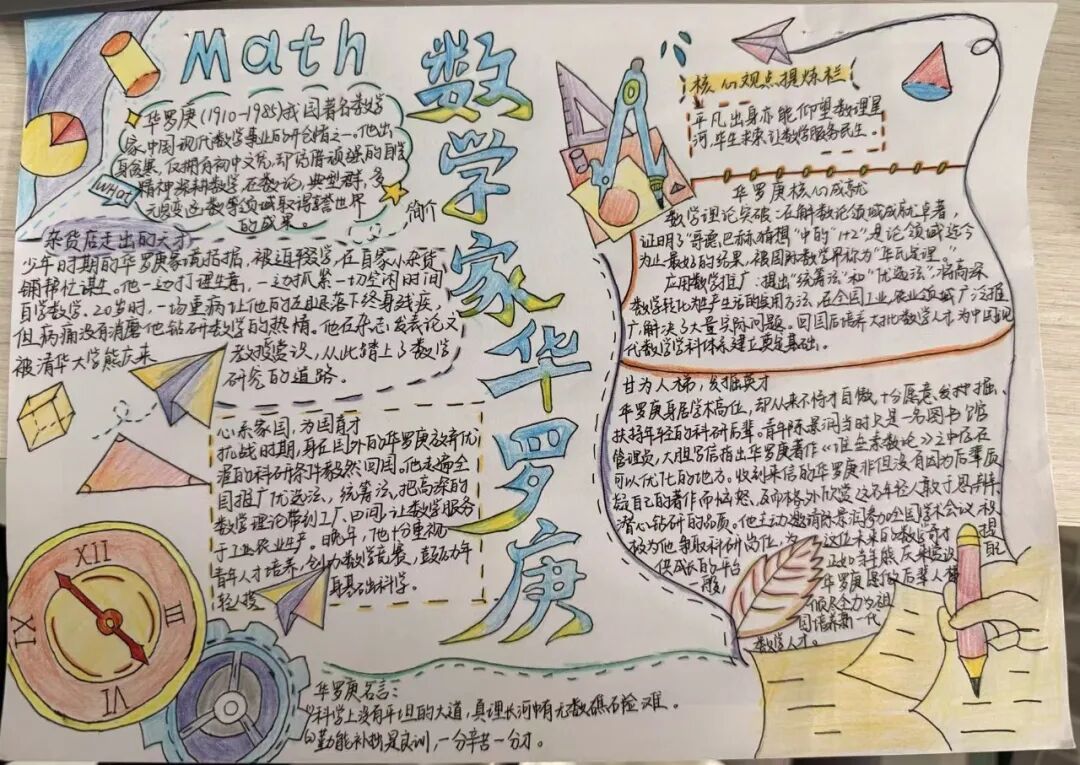 Math
数学家华罗庚
华罗庚(1910-1985)我国著名数学
家,中国现代数学事业的开创者之一。他出
身贫寒,仅拥有初中文凭,却凭借顽强的自学
精神深耕数学,在数论,典型群,多
元复变函数等领域取得誉世界
的成果。
What
简介
杂货店走出的天才
少年时期的华罗庚家境拮据,被迫辍学,在自家小杂货
铺帮忙谋生。他一边打理生意,一边抓紧一切空闲时间
自学数学。20岁时,一场重病让他的左腿落下终身残疾,
但病痛没有消磨他钻研数学的热情。他在杂志发表论文
被清华大学熊庆来
教授赏识,从此踏上了数学
研究的道路。
心系家国,为国育才
抗战时期,身在国外的华罗庚放弃优
渥的科研条件毅然回国。他走遍全
国推广优选法、统筹法,把高深的
数学理论带到工厂、田间,让数学服务
于工业农业生产。晚年,他十分重视
青年人才培养,创办数学竞赛,鼓励年
轻人投身基础科学。
XII
III
VI
IX
华罗庚名言:
科学上没有平坦的大道,真理长河中有无数礁石险滩。
勤能补拙是良训,一分辛苦一分才。
核心观点提炼栏
平凡出身亦能仰望数理星
河,毕生未来让数学服务民生。
华罗庚核心成就
数学理论突破:在解数论领域成就卓著,
证明了"哥德巴赫猜想"中的"1+2",是论领域迄今
为止最好的结果,被国际数学界称为"华氏定理。"
应用数学推广:提出"统筹法"和"优选法",将高深
数学转化为生产生活的实用方法,在全国工业,农业领域广泛推
广,解决了大量实际问题。回国后培养大批数学人才为中国现
代数学学科体系建立奠定基础。
甘为人梯,发掘英才
华罗庚身居学术高位,却从来不恃才自傲,十分愿意发掘、
扶持年轻的科研后辈。青年陈景润当时只是一名图书馆
管理员,大胆写信指出华罗庚著作《堆垒素数论》之中存在
可以优化的地方。收到来信的华罗庚非但没有因为后辈质
疑自己的著作而恼怒,反而格外欣赏这名年轻人敢于思辨、
潜心钻研的品质。他主动邀请陈景润参加全国学术会议,积
极为他争取科研岗位,为这位未来的数学奇才提
供成长的平台
正如当年熊庆来赏识自己
一般,华罗庚愿做后辈人梯
倾尽全力为祖
国培养新一代
数学人才。